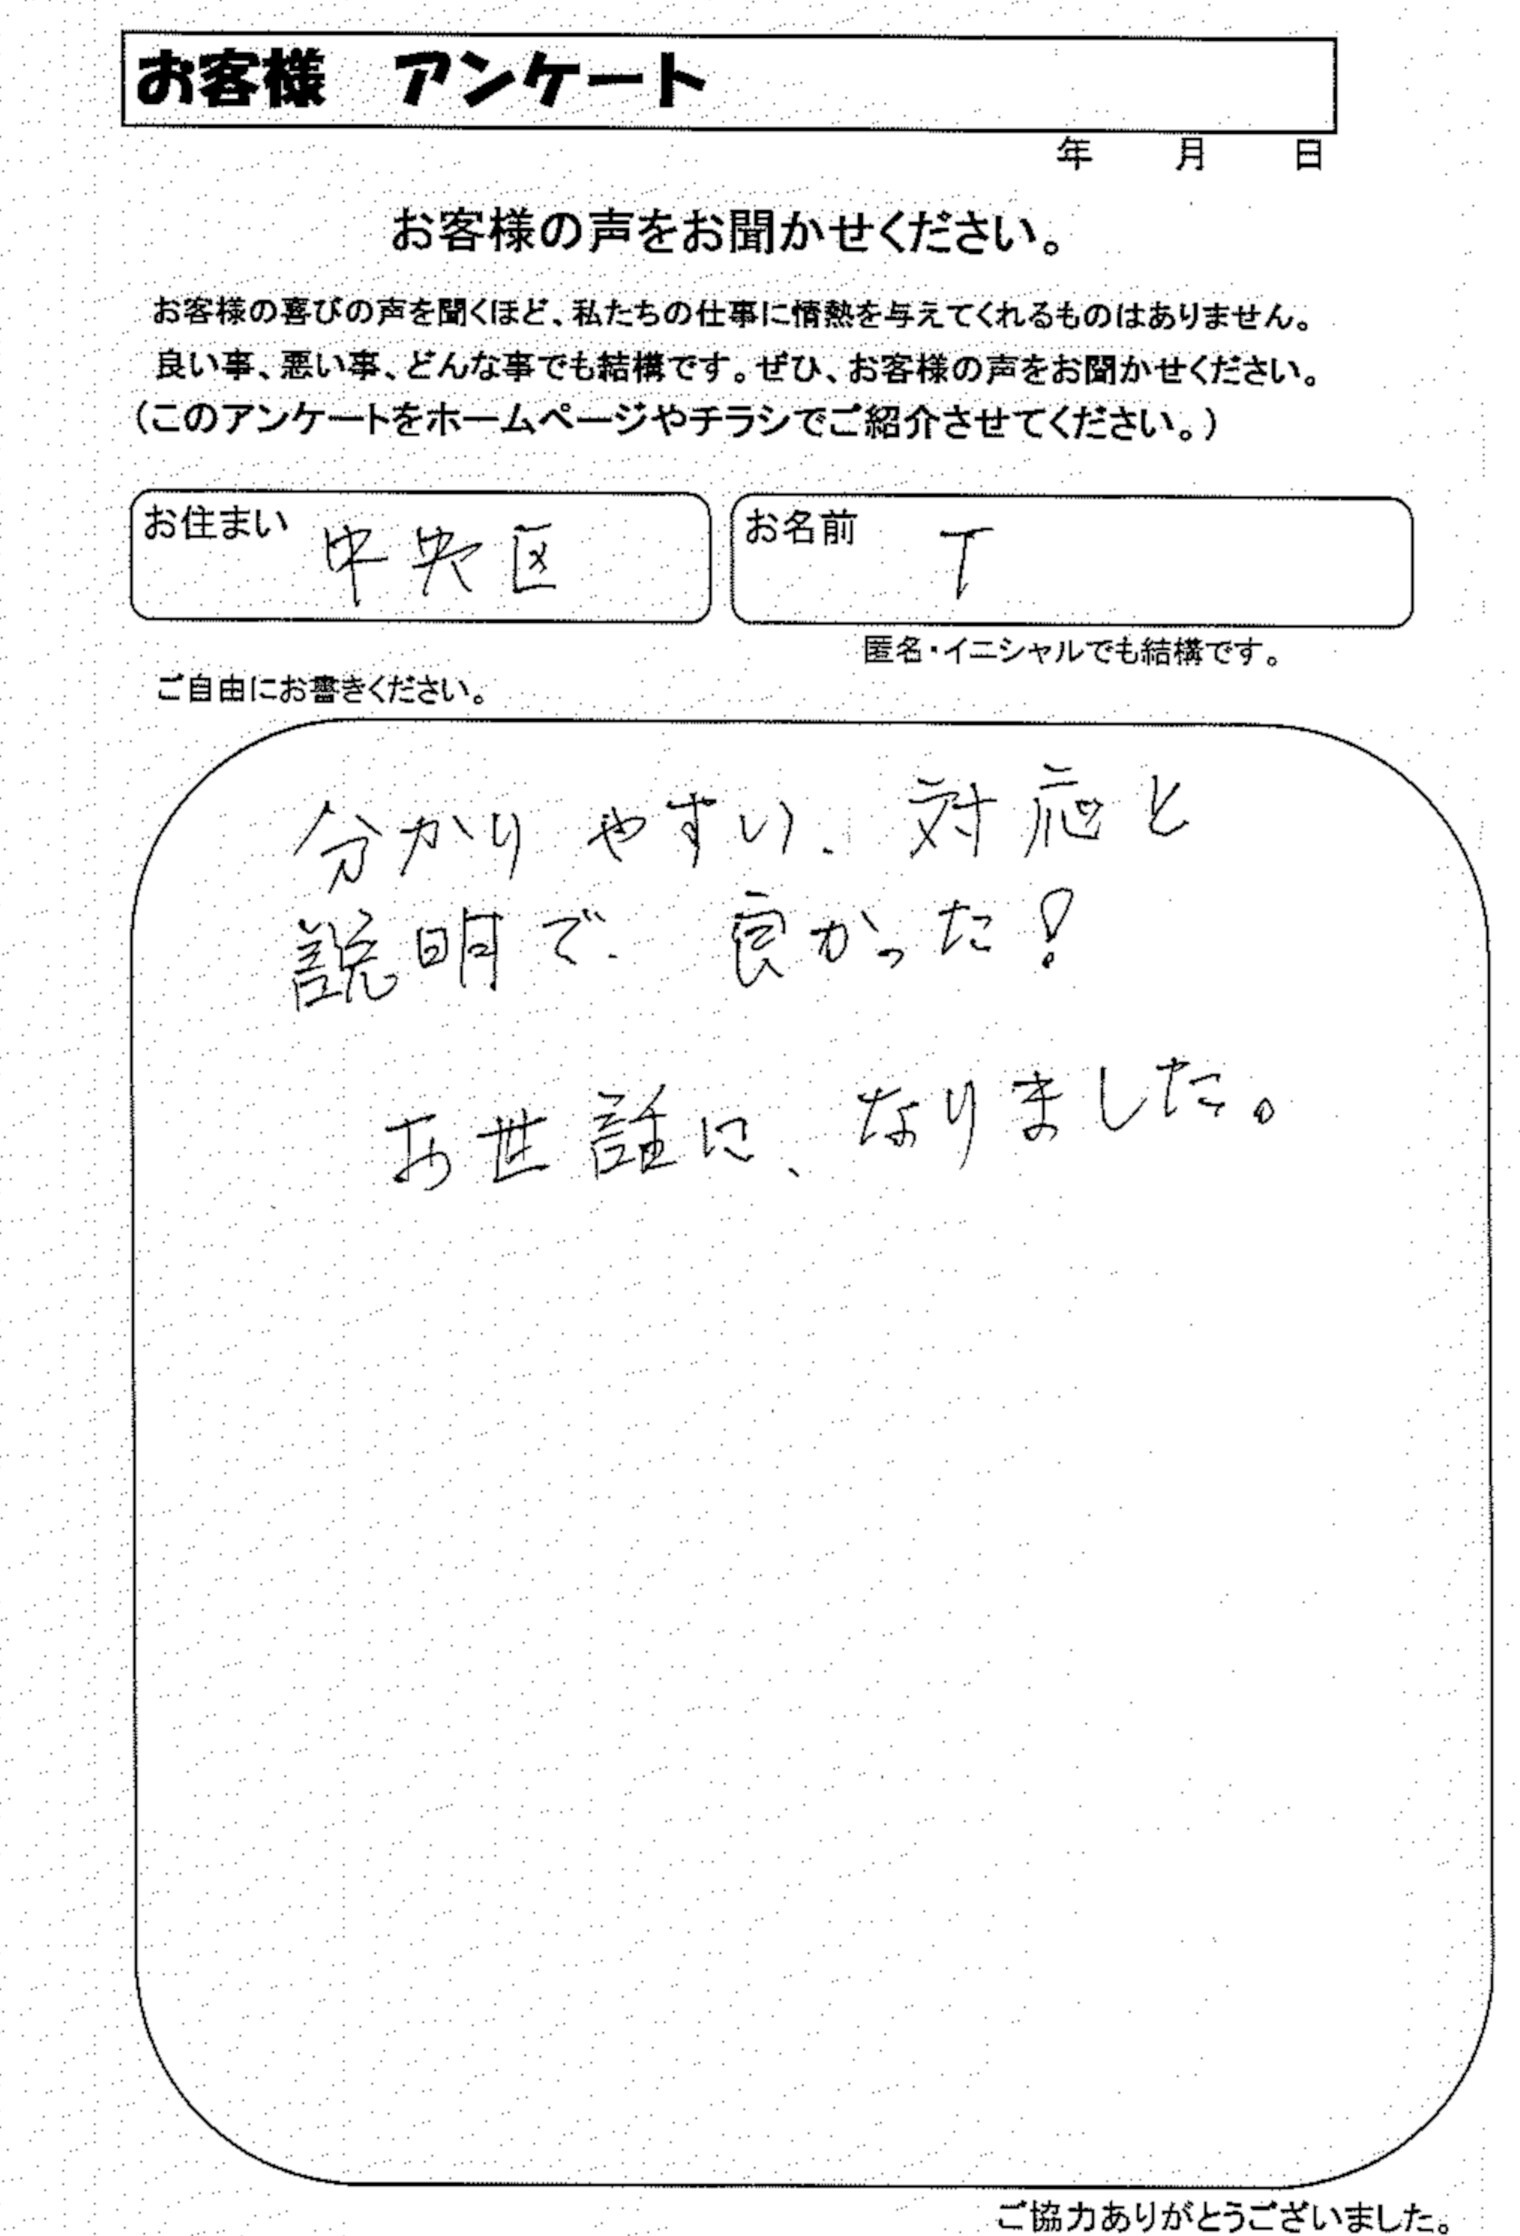 お客様　アンケート
年　月　日
お客様の声をお聞かせください。
お客様の喜びの声を聞くほど、私たちの仕事に情熱を与えてくれるものはありません。
良い事、悪い事、どんな事でも結構です。ぜひ、お客様の声をお聞かせください。
（このアンケートをホームページやチラシでご紹介させてください。）
お住まい　中央区　お名前　T
匿名・イニシャルでも結構です。
ご自由にお書きください。
分かりやすい、対応と
説明で、良かった！
お世話に、なりました。
ご協力ありがとうございました。